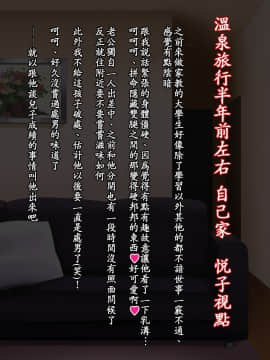 溫泉旅行半年前左右 自己家 悅子視點
之前來做家教的大學生好像除了學習以外其他的都不諳世事一竅不通、
感覺有點陰暗
跟我說話緊張的身體僵硬、因為覺得有點有趣故意讓他看了一下乳溝…
呵呵、拼命隱藏雙腿之間的那變得硬邦邦的東西♥好可愛啊♥
老公獨自一人出差中、之前和他分開也有一段時間沒有照面問候了
反正就住附近要不要嘗嘗滋味如何
此外我不給這孩子破處、估計他以後要一直是處男了(笑)！
呵呵、好久沒嘗過處男的味道了
……就以跟他談兒子成績的事情叫他出來吧